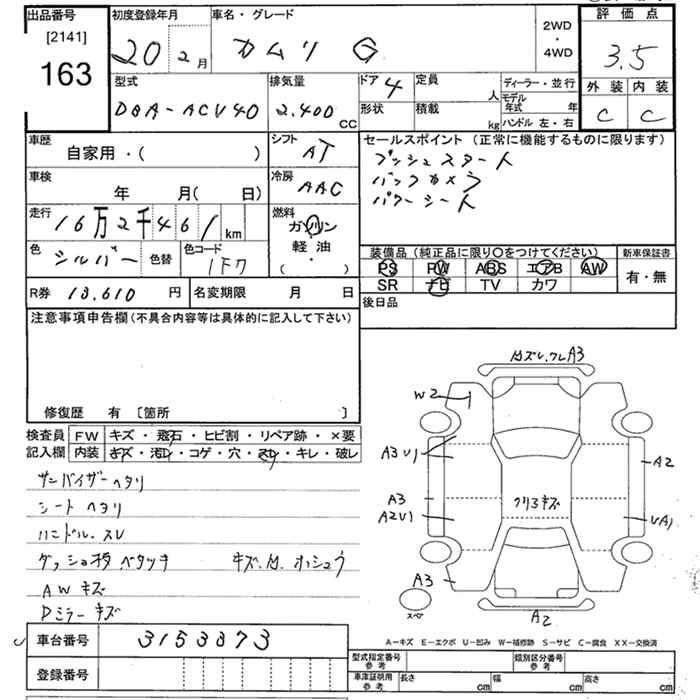 出品番号
[2141]
163
初度登録年月
20 2月
車名・グレード
カムリ G
2WD
・
4WD
評価点
3.5
外装 内装
C C
型式
DBA-ACV40
排気量
2,400 CC
ドア 4
形状
定員 人
積載 kg
ディーラー・並行
モデル年式 年
ハンドル 左・右
車歴
自家用・( )
シフト
AT
車検
年 月( 日)
冷房
AAC
走行
16万2千461 km
燃料
ガソリン
軽油
( ・ )
色 シルバー 色替
色コード
1F7
セールスポイント (正常に機能するものに限ります)
プッシュスタート
バックカメラ
パワーシート
装備品 (純正品に限り○をつけてください)
PS PW ABS エアB AW
SR ナビ TV カワ
新車保証書
有・無
R券 13,610 円
名変期限 月 日
後日品
注意事項申告欄 (不具合内容等は具体的に記入して下さい)
修復歴 有 [箇所 ]
検査員記入欄
FW キズ・飛石・ヒビ割・リペア跡・×要
内装 キズ・汚れ・コゲ・穴・スレ・キレ・破レ
サンバイザーヘタリ
シートヘタリ
ハンドル.スレ
ダッシュ枠ベタツキ
AWキズ
Dミラーキズ
A3
W2
A3 U1
A2
A3
A2U1
クリアキズ
UA1
A3
スペア
A2
A-キズ E-エクボ U-凹み W-補修跡 S-サビ C-腐食 XX-交換済
車台番号 3153373
登録番号
型式指定番号 参考
類別区分番号 参考
車庫証明用 参考
長さ cm 幅 cm 高さ cm